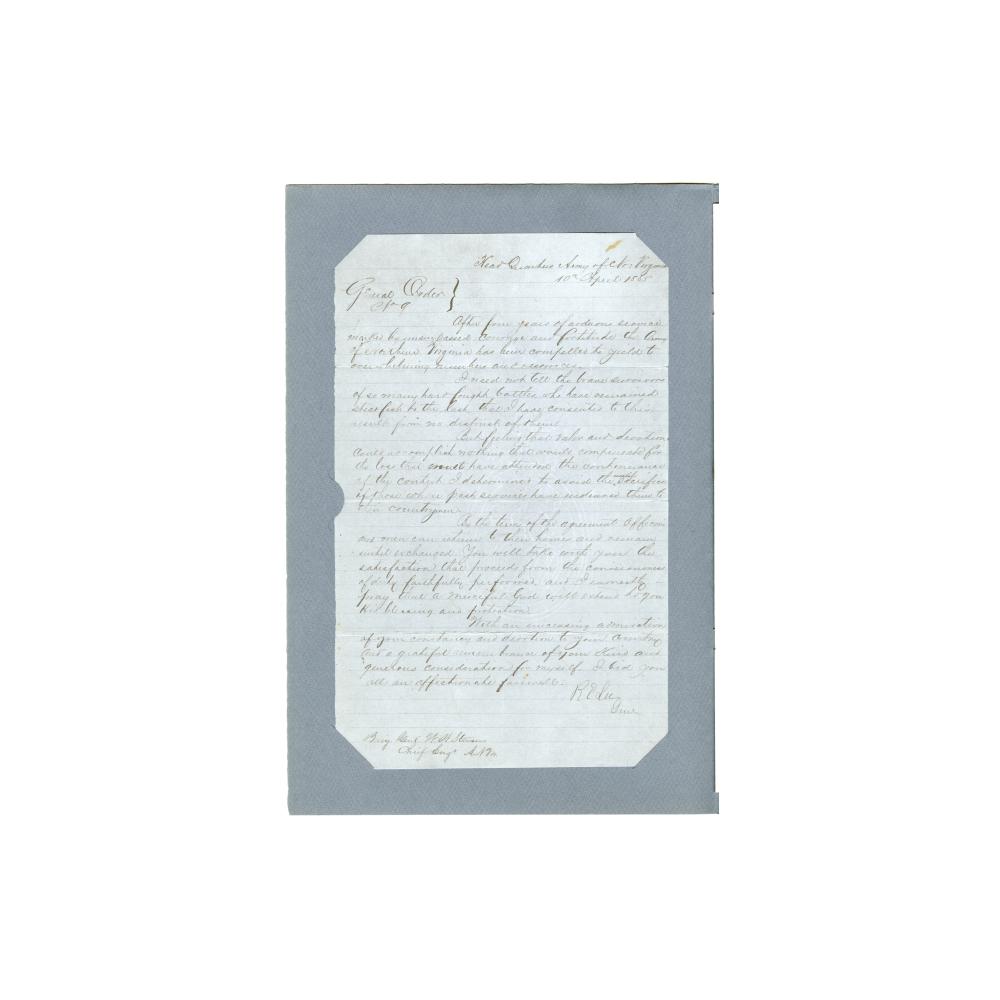 Head Quarters Army of No: Virginia
10th April 1865
General Order
No 9
After four years of arduous service
marked by unsurpassed courage and fortitude the Army
of Northern Virginia has been compelled to yield to
overwhelming numbers and resources.
I need not tell the brave survivors
of so many hard fought battles who have remained
steadfast to the last that I have consented to this
result from no distrust of them.
But feeling that valor and devotion
could accomplish nothing that would compensate for
the loss that must have attended the continuance
of the contest I determined to avoid the useless sacrifice
of those whose past services have endeared them to
their countrymen.
By the terms of the agreement Officers
and men can return to their homes and remain
until exchanged. You will take with you the
satisfaction that proceeds from the consciousness
of duty faithfully performed and I earnestly
pray that a Merciful God will extend to you
His blessing and protection.
With an unceasing admiration
of your constancy and devotion to your Country
and a grateful remembrance of your Kind and
generous consideration for myself I bid you
all an affectionate farewell.
R E Lee
Genl
Brig Genl W. H. Stevens
Chief Engr A. N. Va